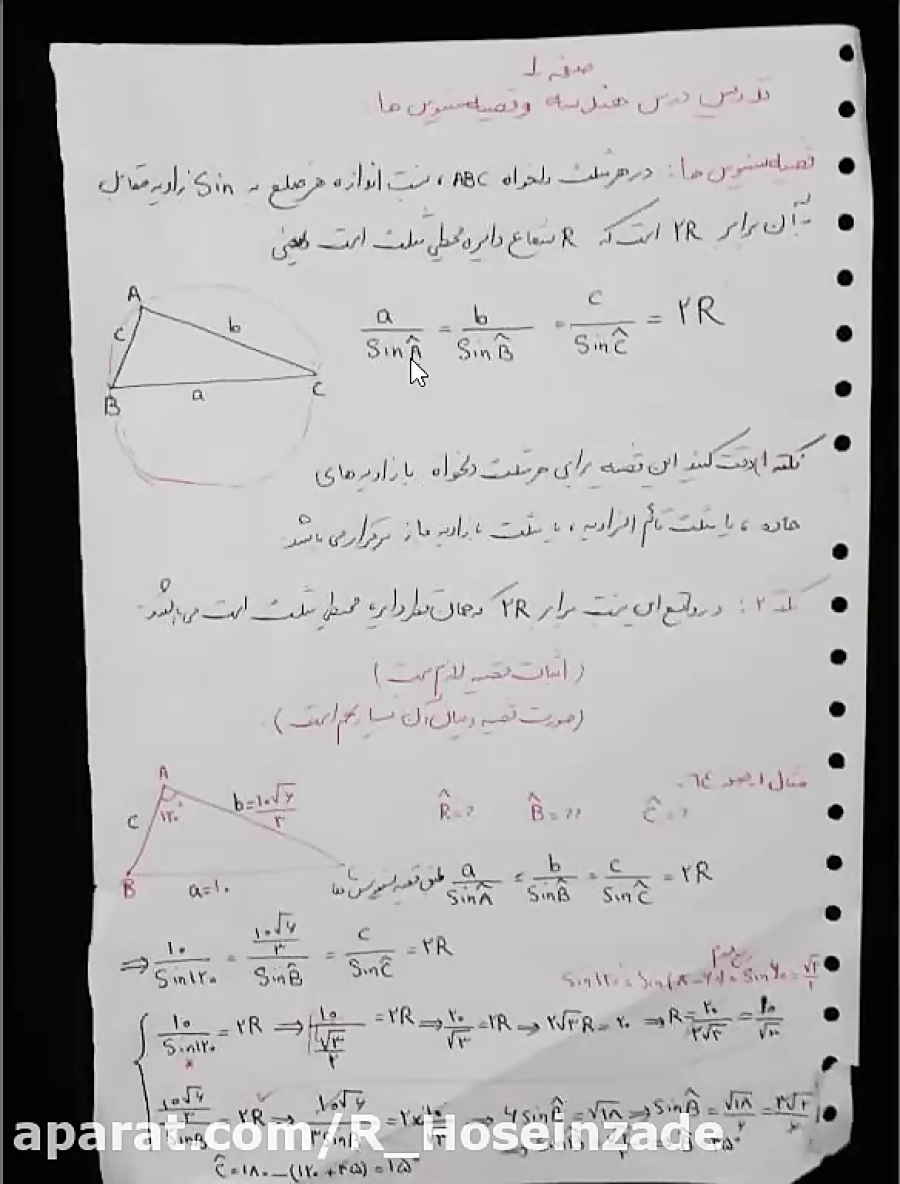 صفحه ۱
تدریس درس هندسه و قضیه سینوس ها
قضیه سینوس ها: در هر مثلث دلخواه ABC، نسبت اندازه هر ضلع به Sin زاویه مقابل
به آن برابر ۲R است که R شعاع دایره محیطی مثلث است یعنی
a/SinÂ = b/SinB̂ = c/SinĈ = ۲R
A
B
C
a
b
c
نکته ۱) دقت کنید این قضیه برای هر مثلث دلخواه با زاویه های
حاده، یا مثلث قائم الزاویه، یا مثلث با زاویه باز برقرار می باشد
نکته ۲: در واقع این نسبت برابر ۲R که همان قطر دایره محیطی مثلث است می باشد.
(اثبات قضیه لازم نیست)
(صورت قضیه و مثال آن بسیار مهم است)
مثال ۱ صفحه ۶۴
R̂=? B̂=?? Ĉ=?
A
۱۲۰°
c
b=۱۰√۶/۳
B
a=۱۰
طبق قضیه سینوس ها a/SinÂ = b/SinB̂ = c/SinĈ = ۲R
⇒ ۱۰/Sin۱۲۰ = (۱۰√۶/۳)/SinB̂ = c/SinĈ = ۲R
ربع دوم
Sin۱۲۰ = Sin(۱۸۰-۶۰) = Sin۶۰ = √۳/۲
۱۰/Sin۱۲۰ = ۲R ⇒ ۱۰/(√۳/۲) = ۲R ⇒ ۲۰/√۳ = ۲R → ۲√۳R = ۲۰ ⇒ R = ۲۰/۲√۳ = ۱۰/√۳
(۱۰√۶/۳)/SinB = ۲R ⇒ ۱۰√۶/۳SinB = ۲×۱۰/√۳ ⇒ ۶SinB̂ = √۱۸ ⇒ SinB̂ = √۱۸/۶ = ۳√۲/۶
Ĉ = ۱۸۰ - (۱۲۰ + ۴۵) = ۱۵°
aparat.com/R_Hoseinzade